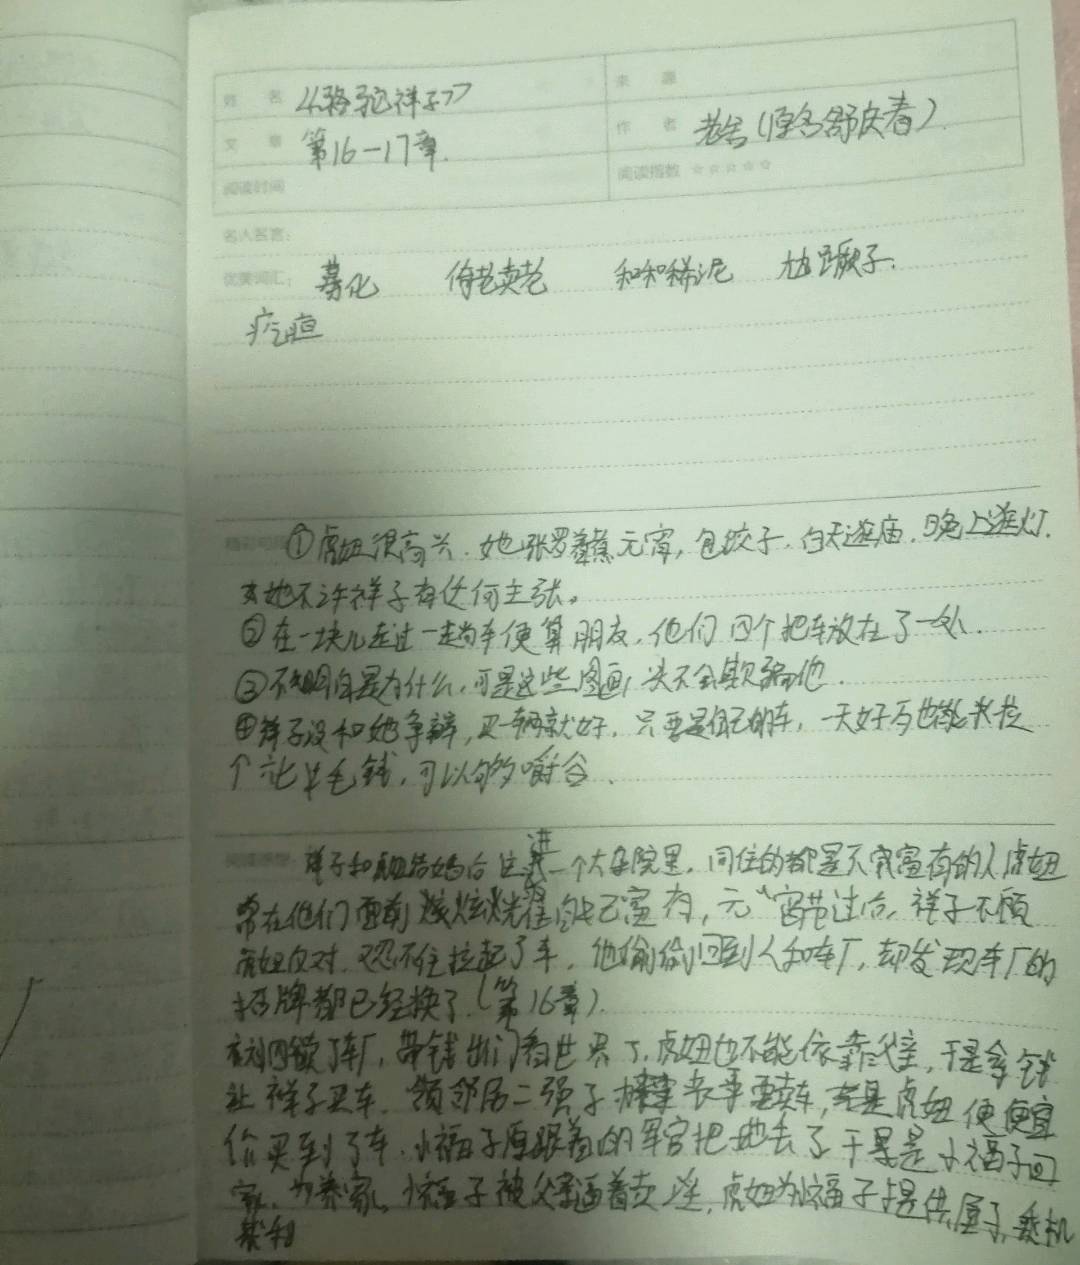 姓 名 《骆驼祥子》 来 源
文 章 第16－17章. 作 者 老舍(原名舒庆春)
阅读时间 阅读指数 ☆☆☆☆☆
名人名言:
优美词汇: 募化 倚老卖老 和和稀泥
疙疸
精彩句段 ①虎妞很高兴.她张罗着煮元宵,包饺子.白天逛庙.晚上逛灯.
她不许祥子有任何主张。
②在一块儿走过一趟车便算朋友,他们四个把车放在了一处.
③不明白是为什么,可是这些图画,决不会欺骗他.
④祥子没和她争辩,买辆就好,只要是自己的车,一天好歹也能拉
个六七毛钱,可以够嚼谷.
祥子和虎妞结婚后住进一个大杂院里,同住的都是不富有的人虎妞
常在他们面前炫耀自己富有,元宵节过后,祥子不顾
虎妞反对,忍不住拉起了车,他偷偷回到人和车厂,却发现车厂的
招牌都已经换了.(第16章).
刘四 了车厂,带钱出门看世界了,虎妞也不能依靠父亲,于是拿钱
让祥子买车.领邻居二强子 卖车,于是虎妞便便宜
价买到了车.小福子原跟着的军官把她 去了于是小福子回
家,为养家。小福子被父亲逼着卖淫,虎妞为小福子提供屋子,乘机